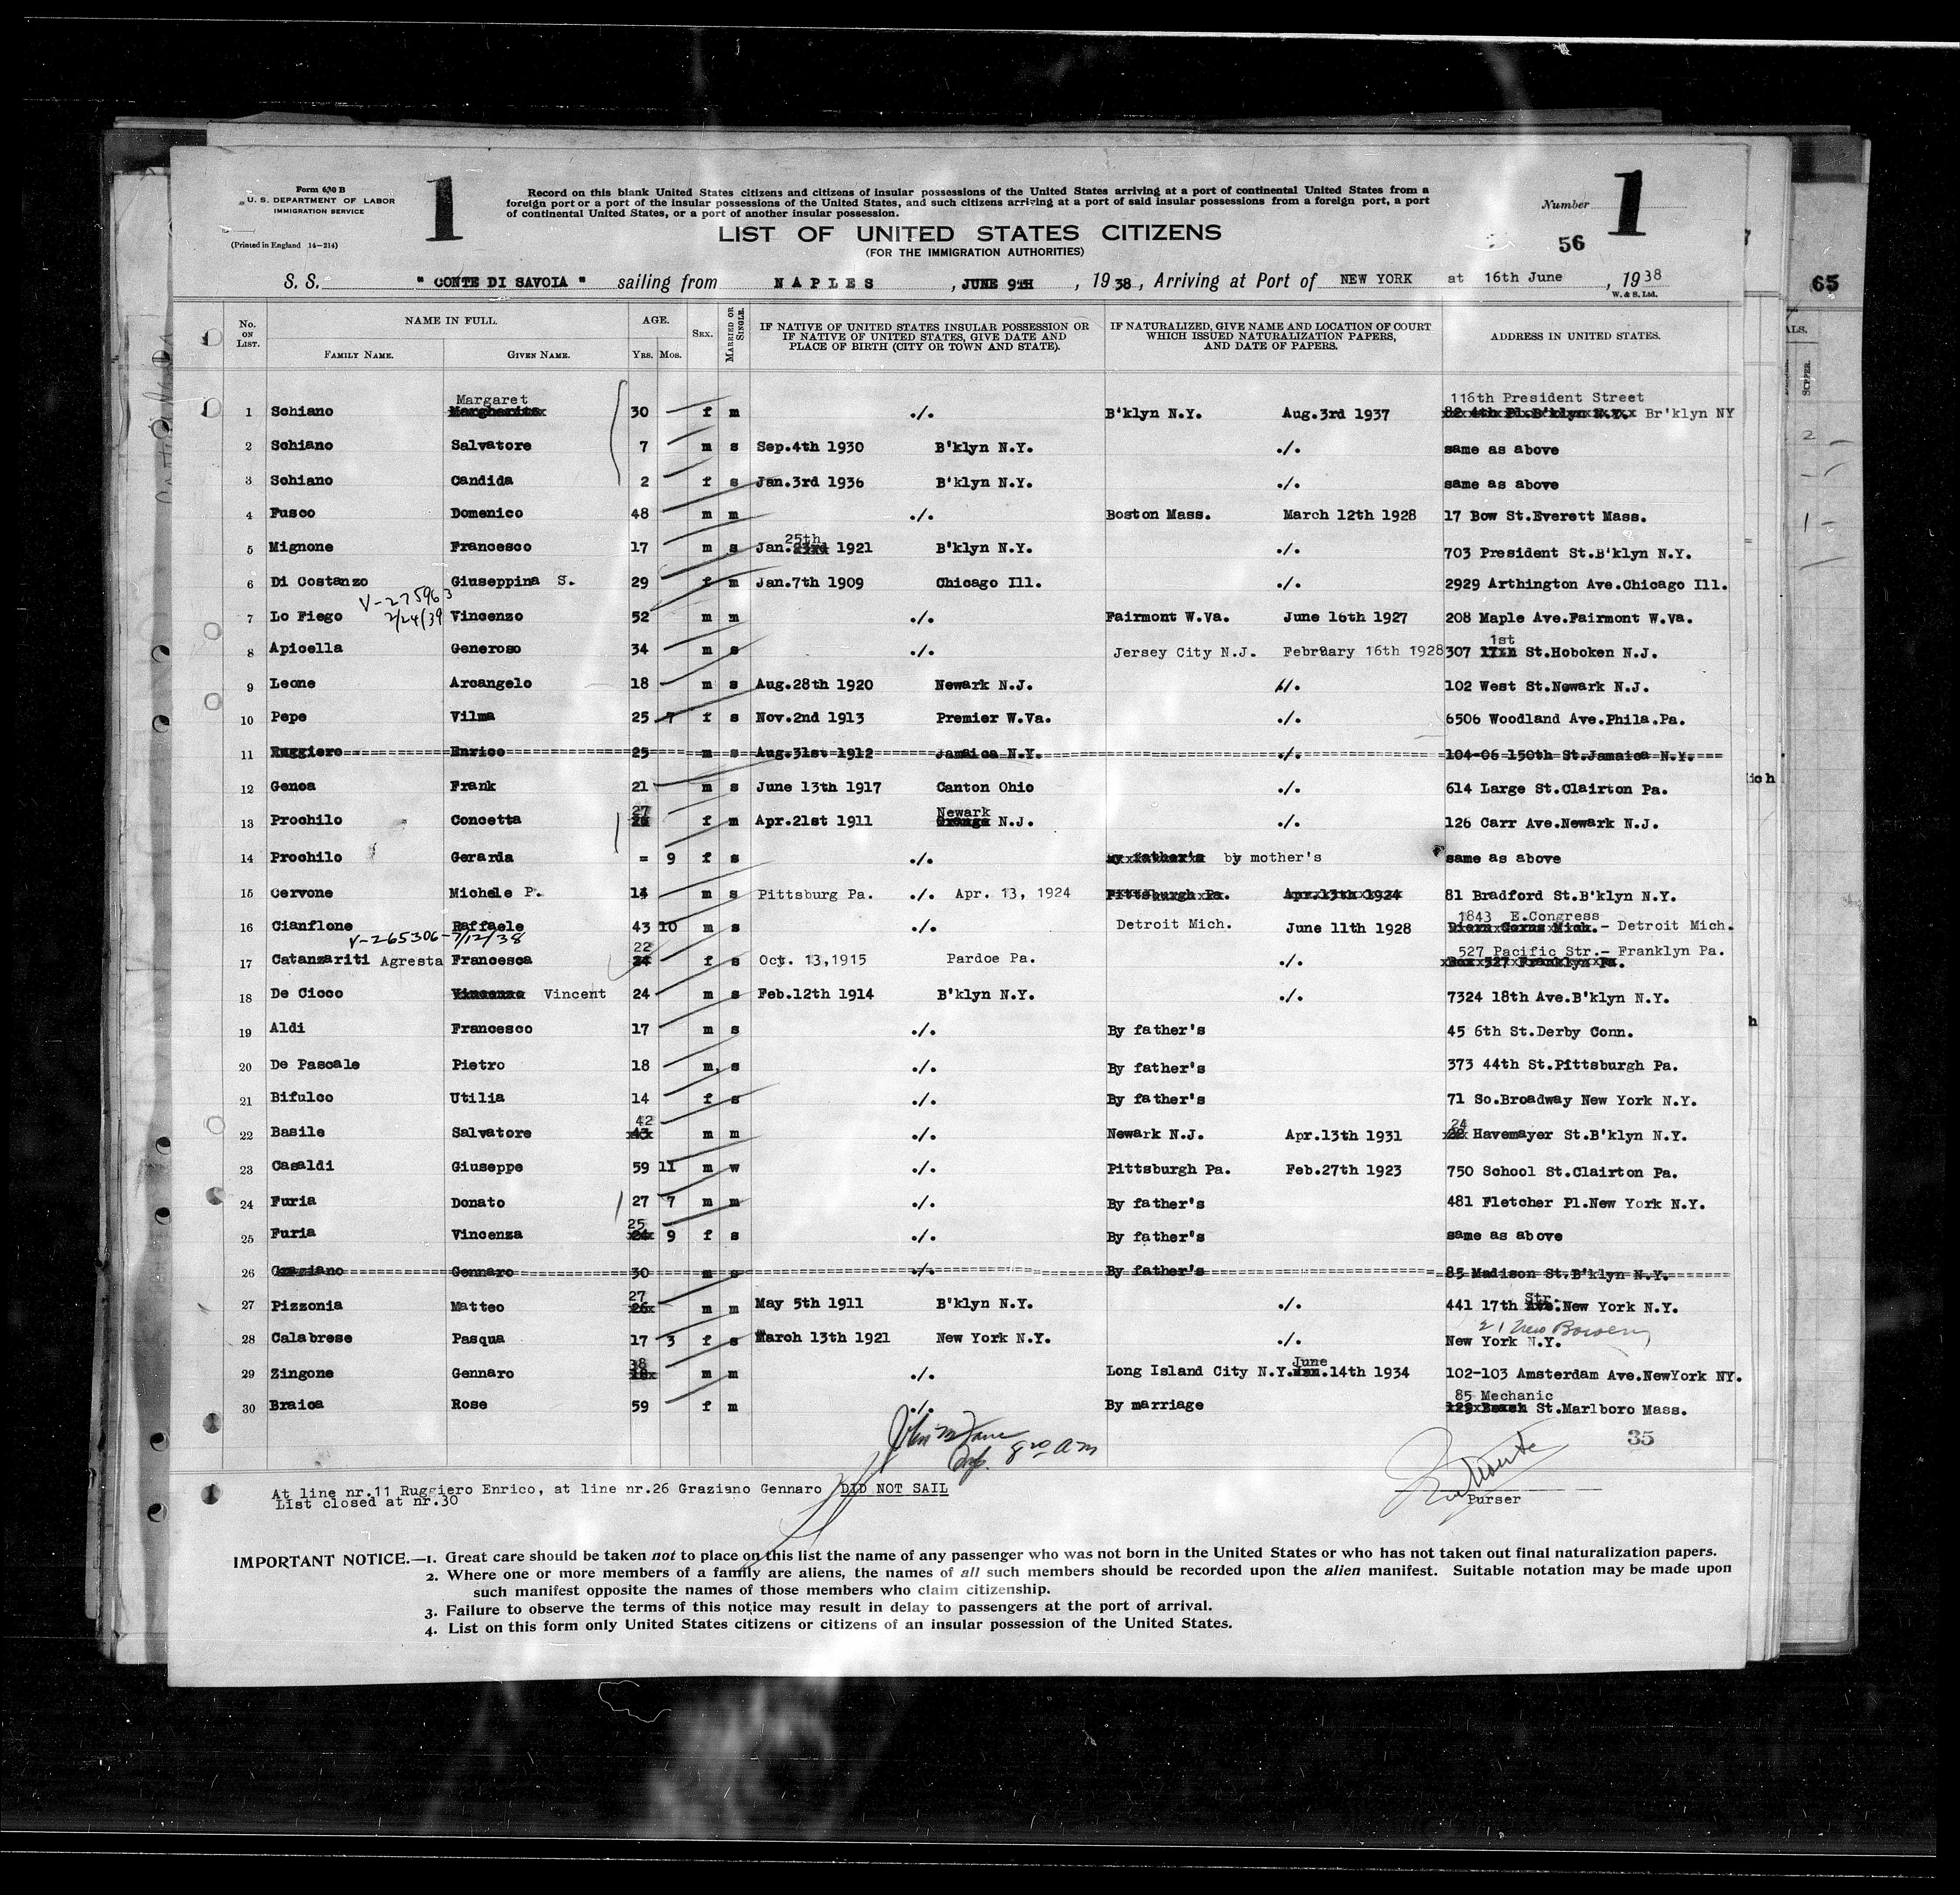 Form 630 B
U. S. DEPARTMENT OF LABOR
IMMIGRATION SERVICE
(Printed in England 14—214)
1
Record on this blank United States citizens and citizens of insular possessions of the United States arriving at a port of continental United States from a
foreign port or a port of the insular possessions of the United States, and such citizens arriving at a port of said insular possessions from a foreign port, a port
of continental United States, or a port of another insular possession.
Number 1
56
65
LIST OF UNITED STATES CITIZENS
(FOR THE IMMIGRATION AUTHORITIES)
S. S. " CONTE DI SAVOIA " sailing from NAPLES, JUNE 9TH, 1938, Arriving at Port of NEW YORK at 16th June, 1938
W. & S. Ltd.
No. ON LIST. NAME IN FULL. AGE. SEX. MARRIED OR SINGLE. IF NATIVE OF UNITED STATES INSULAR POSSESSION OR IF NATIVE OF UNITED STATES, GIVE DATE AND PLACE OF BIRTH (CITY OR TOWN AND STATE). IF NATURALIZED, GIVE NAME AND LOCATION OF COURT WHICH ISSUED NATURALIZATION PAPERS, AND DATE OF PAPERS. ADDRESS IN UNITED STATES.
FAMILY NAME. GIVEN NAME. YRS. MOS.
Margaret 116th President Street
1 Schiano Margherita 30 f m ./. B'klyn N.Y. Aug.3rd 1937 82 4th Pl.B'klyn N.Y. Br'klyn NY
2 Schiano Salvatore 7 m s Sep.4th 1930 B'klyn N.Y. ./. same as above
3 Schiano Candida 2 f s Jan.3rd 1936 B'klyn N.Y. ./. same as above
4 Fusco Domenico 48 m m ./. Boston Mass. March 12th 1928 17 Bow St.Everett Mass.
25th
5 Mignone Francesco 17 m s Jan.23rd 1921 B'klyn N.Y. ./. 703 President St.B'klyn N.Y.
6 Di Costanzo Giuseppina S. 29 f m Jan.7th 1909 Chicago Ill. ./. 2929 Arthington Ave.Chicago Ill.
V-275963
2/24/39
7 Lo Fiego Vincenzo 52 m m ./. Fairmont W.Va. June 16th 1927 208 Maple Ave.Fairmont W.Va.
1st
8 Apicella Generoso 34 m s ./. Jersey City N.J. February 16th 1928 307 17th St.Hoboken N.J.
9 Leone Arcangelo 18 m s Aug.28th 1920 Newark N.J. ./. 102 West St.Newark N.J.
10 Pepe Vilma 25 7 f s Nov.2nd 1913 Premier W.Va. ./. 6506 Woodland Ave.Phila.Pa.
11 Ruggiero Enrico 25 m s Aug.31st 1912 Jamaica N.Y. ./. 104-06 150th St.Jamaica N.Y.
12 Genoa Frank 21 m s June 13th 1917 Canton Ohio ./. 614 Large St.Clairton Pa.
27 Newark
13 Prochilo Concetta 26 f m Apr.21st 1911 Orange N.J. ./. 126 Carr Ave.Newark N.J.
14 Prochilo Gerarda = 9 f s ./. by mother's same as above
15 Cervone Michele P. 14 m s Pittsburg Pa. ./. Apr. 13, 1924 Pittsburgh Pa. Apr.13th 1924 81 Bradford St.B'klyn N.Y.
1843 E.Congress
16 Cianflone Raffaele 43 10 m s ./. Detroit Mich. June 11th 1928 - Detroit Mich.
V-265306-7/12/38
22 527 Pacific Str.- Franklyn Pa.
17 Catanzariti Agresta Francesca 24 f s Oct. 13,1915 Pardoe Pa. ./. Box 527 Franklyn Pa.
18 De Cicco Vincenzo Vincent 24 m s Feb.12th 1914 B'klyn N.Y. ./. 7324 18th Ave.B'klyn N.Y.
19 Aldi Francesco 17 m s ./. By father's 45 6th St.Derby Conn.
20 De Pascale Pietro 18 m. s ./. By father's 373 44th St.Pittsburgh Pa.
21 Bifulco Utilia 14 f s ./. By father's 71 So.Broadway New York N.Y.
42 24
22 Basile Salvatore 43 m m ./. Newark N.J. Apr.13th 1931 22 Havemayer St.B'klyn N.Y.
23 Casaldi Giuseppe 59 11 m w ./. Pittsburgh Pa. Feb.27th 1923 750 School St.Clairton Pa.
24 Furia Donato 27 7 m m ./. By father's 481 Fletcher Pl.New York N.Y.
25
25 Furia Vincenza 24 9 f s ./. By father's same as above
26 Graziano Gennaro 30 m s ./. By father's 85 Madison St.B'klyn N.Y.
27 Str.
27 Pizzonia Matteo 26 m m May 5th 1911 B'klyn N.Y. ./. 441 17th Ave.New York N.Y.
21 New Bowery
28 Calabrese Pasqua 17 3 f s March 13th 1921 New York N.Y. ./. New York N.Y.
38 June
29 Zingone Gennaro 18 m m ./. Long Island City N.Y. Jan.14th 1934 102-103 Amsterdam Ave.NewYork NY.
85 Mechanic
30 Braica Rose 59 f m ./. By marriage 129 Beach St.Marlboro Mass.
35
At line nr.11 Ruggiero Enrico, at line nr.26 Graziano Gennaro DID NOT SAIL
List closed at nr.30
Purser
IMPORTANT NOTICE.—1. Great care should be taken not to place on this list the name of any passenger who was not born in the United States or who has not taken out final naturalization papers.
2. Where one or more members of a family are aliens, the names of all such members should be recorded upon the alien manifest. Suitable notation may be made upon
such manifest opposite the names of those members who claim citizenship.
3. Failure to observe the terms of this notice may result in delay to passengers at the port of arrival.
4. List on this form only United States citizens or citizens of an insular possession of the United States.